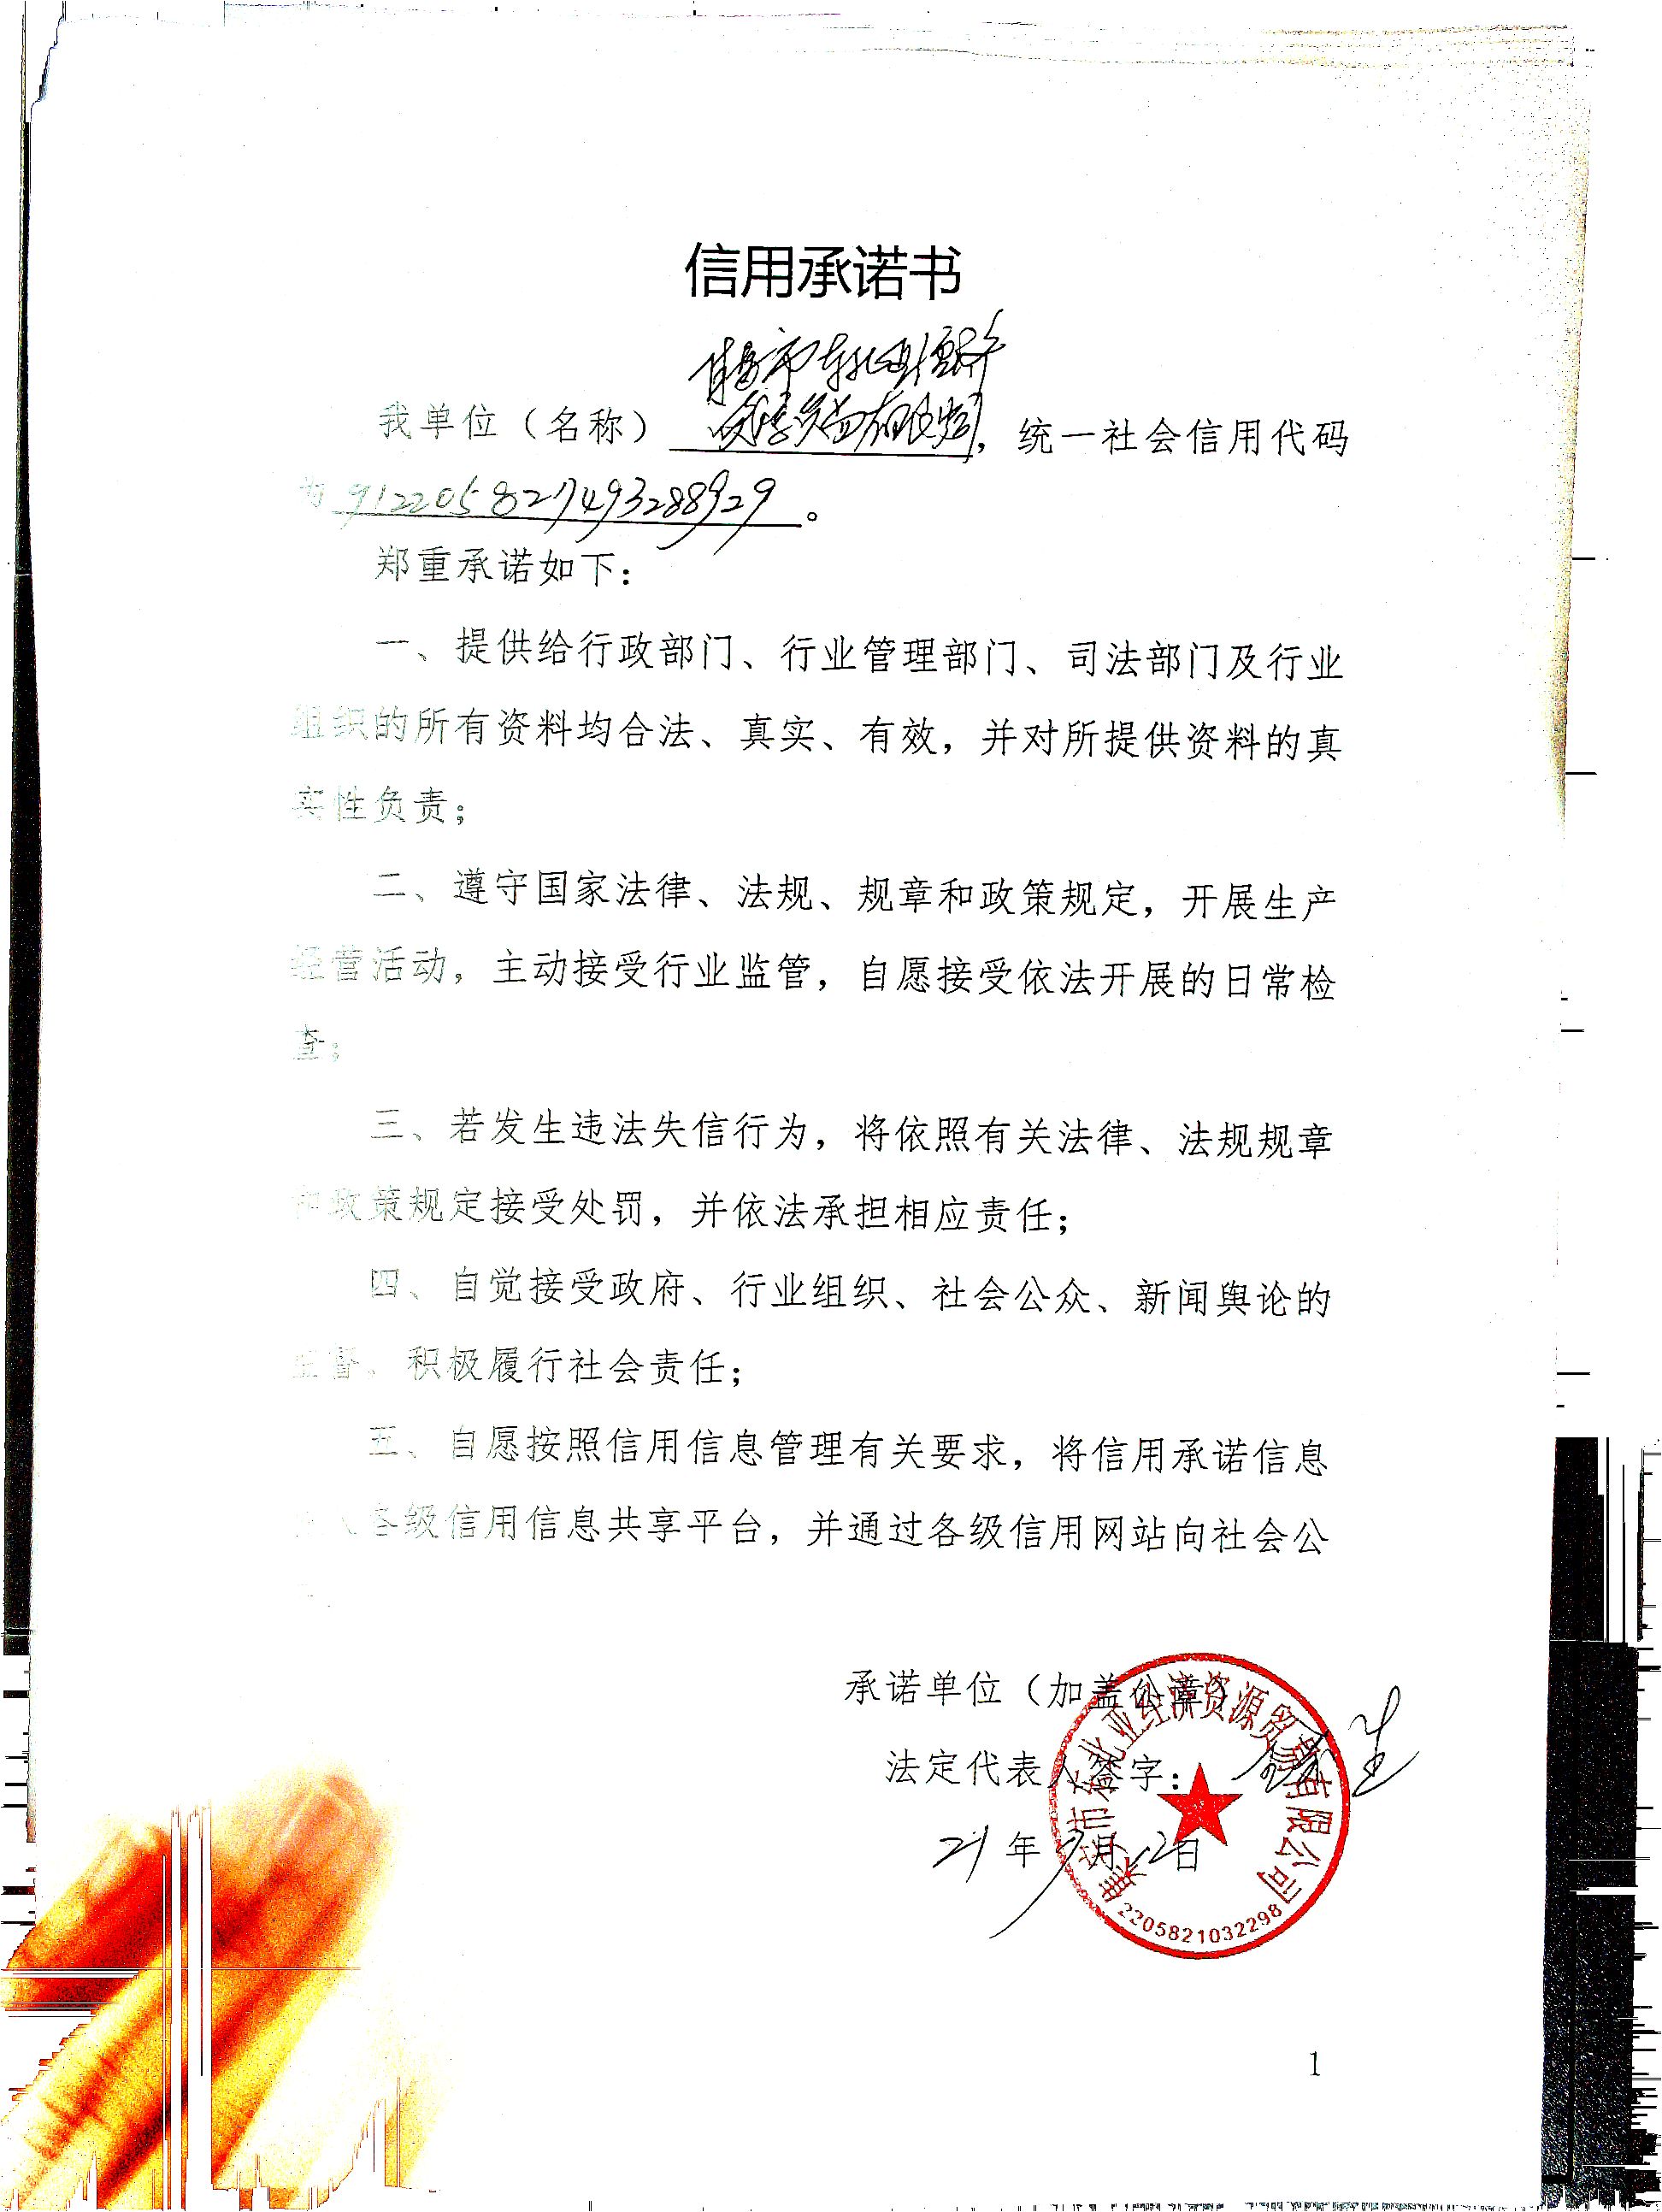 信用承诺书
我单位（名称）集安市东北亚经济资源贸易有限公司，统一社会信用代码
为912205827493288929。
郑重承诺如下：
一、提供给行政部门、行业管理部门、司法部门及行业
组织的所有资料均合法、真实、有效，并对所提供资料的真
实性负责；
二、遵守国家法律、法规、规章和政策规定，开展生产
经营活动，主动接受行业监管，自愿接受依法开展的日常检
查；
三、若发生违法失信行为，将依照有关法律、法规规章
和政策规定接受处罚，并依法承担相应责任；
四、自觉接受政府、行业组织、社会公众、新闻舆论的
监督、积极履行社会责任；
五、自愿按照信用信息管理有关要求，将信用承诺信息
各级信用信息共享平台，并通过各级信用网站向社会公
承诺单位（加盖公章）
法定代表人签字：
21年7月12日
集安市东北亚经济资源贸易有限公司
2205821032298
1